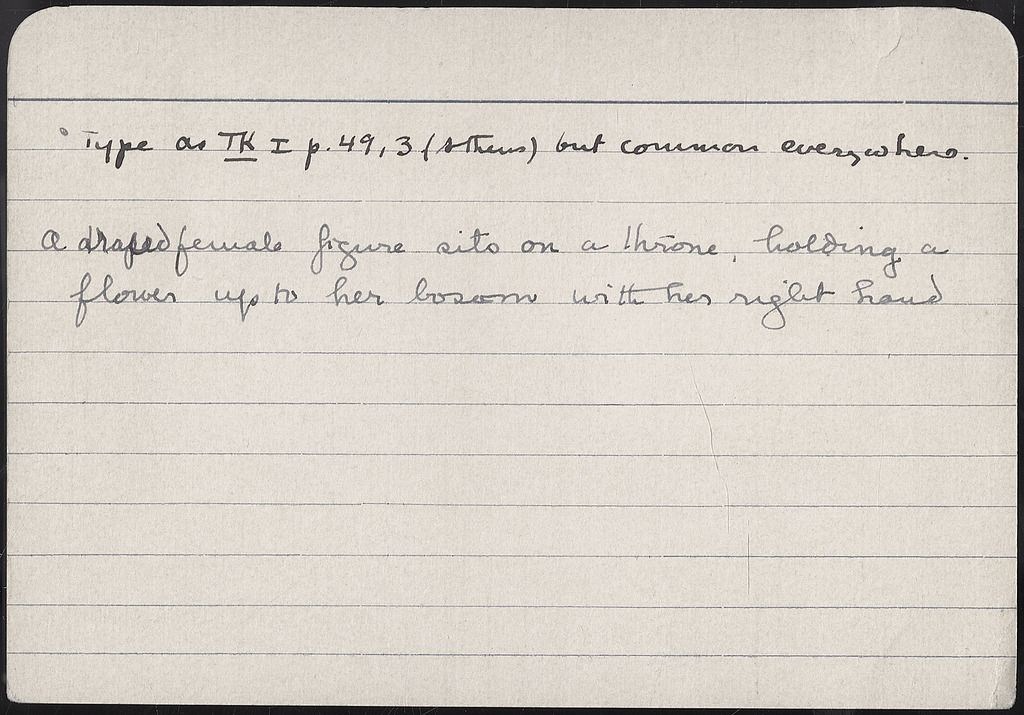 Type as TK I p. 49, 3 (Athens) but common everywhere.
A draped female figure sits on a throne, holding a
flower up to her bosom with her right hand